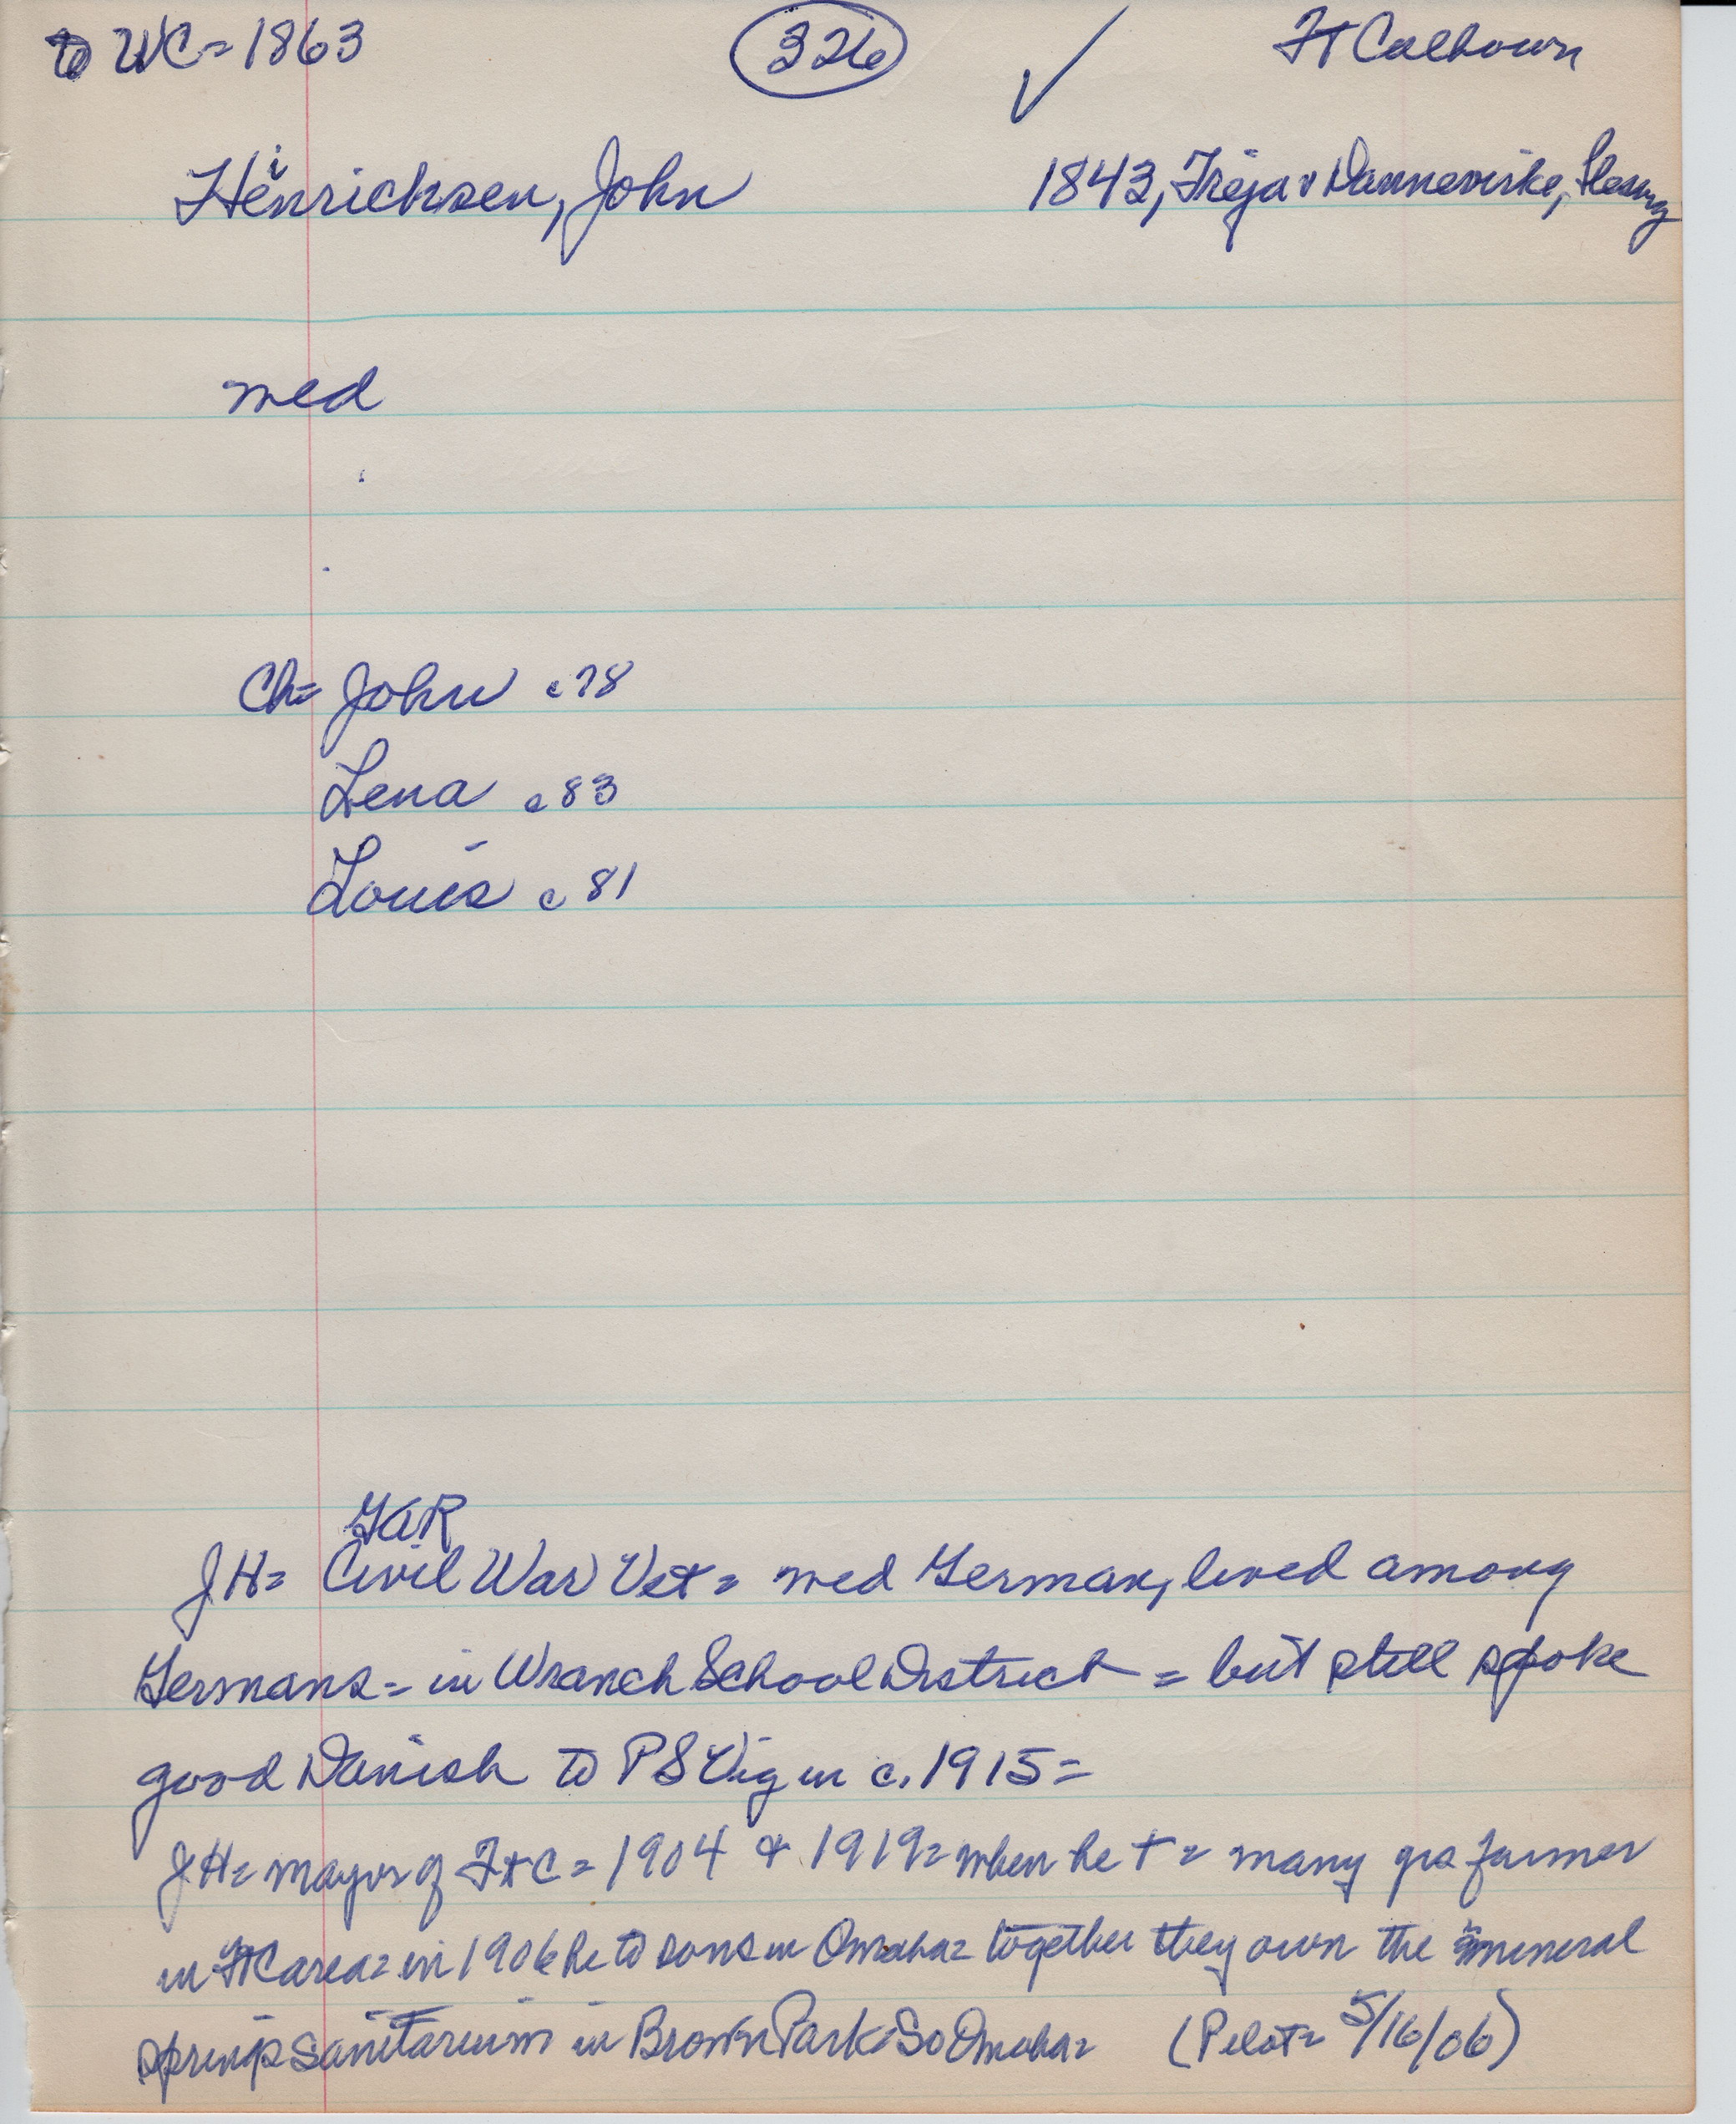 to WC = 1863 (326) ✓ Ft Calhoun
Henricksen, John 1843, Treja v Dannevirke, Slesvig
i
med
Ch = John c 78
Lena c 83
Louis c 81
GAR
JH = Civil War Vet = med German, lived among
Germans = in Wranch School District = but still spoke
good Danish to PS Vig in c. 1915 =
JH = mayor of Ft C = 1904 & 1919 = when he † = many yrs farmer
in FtC area = in 1906 he to sons in Omaha = together they own the mineral
springs sanitarium in Brown Park = So Omaha = (Pilot = 5/16/06)